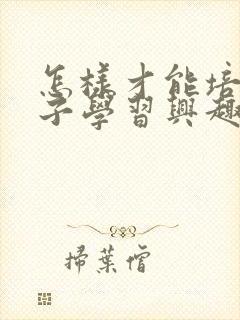 怎樣才能培
子學習興趣
掃葉僧